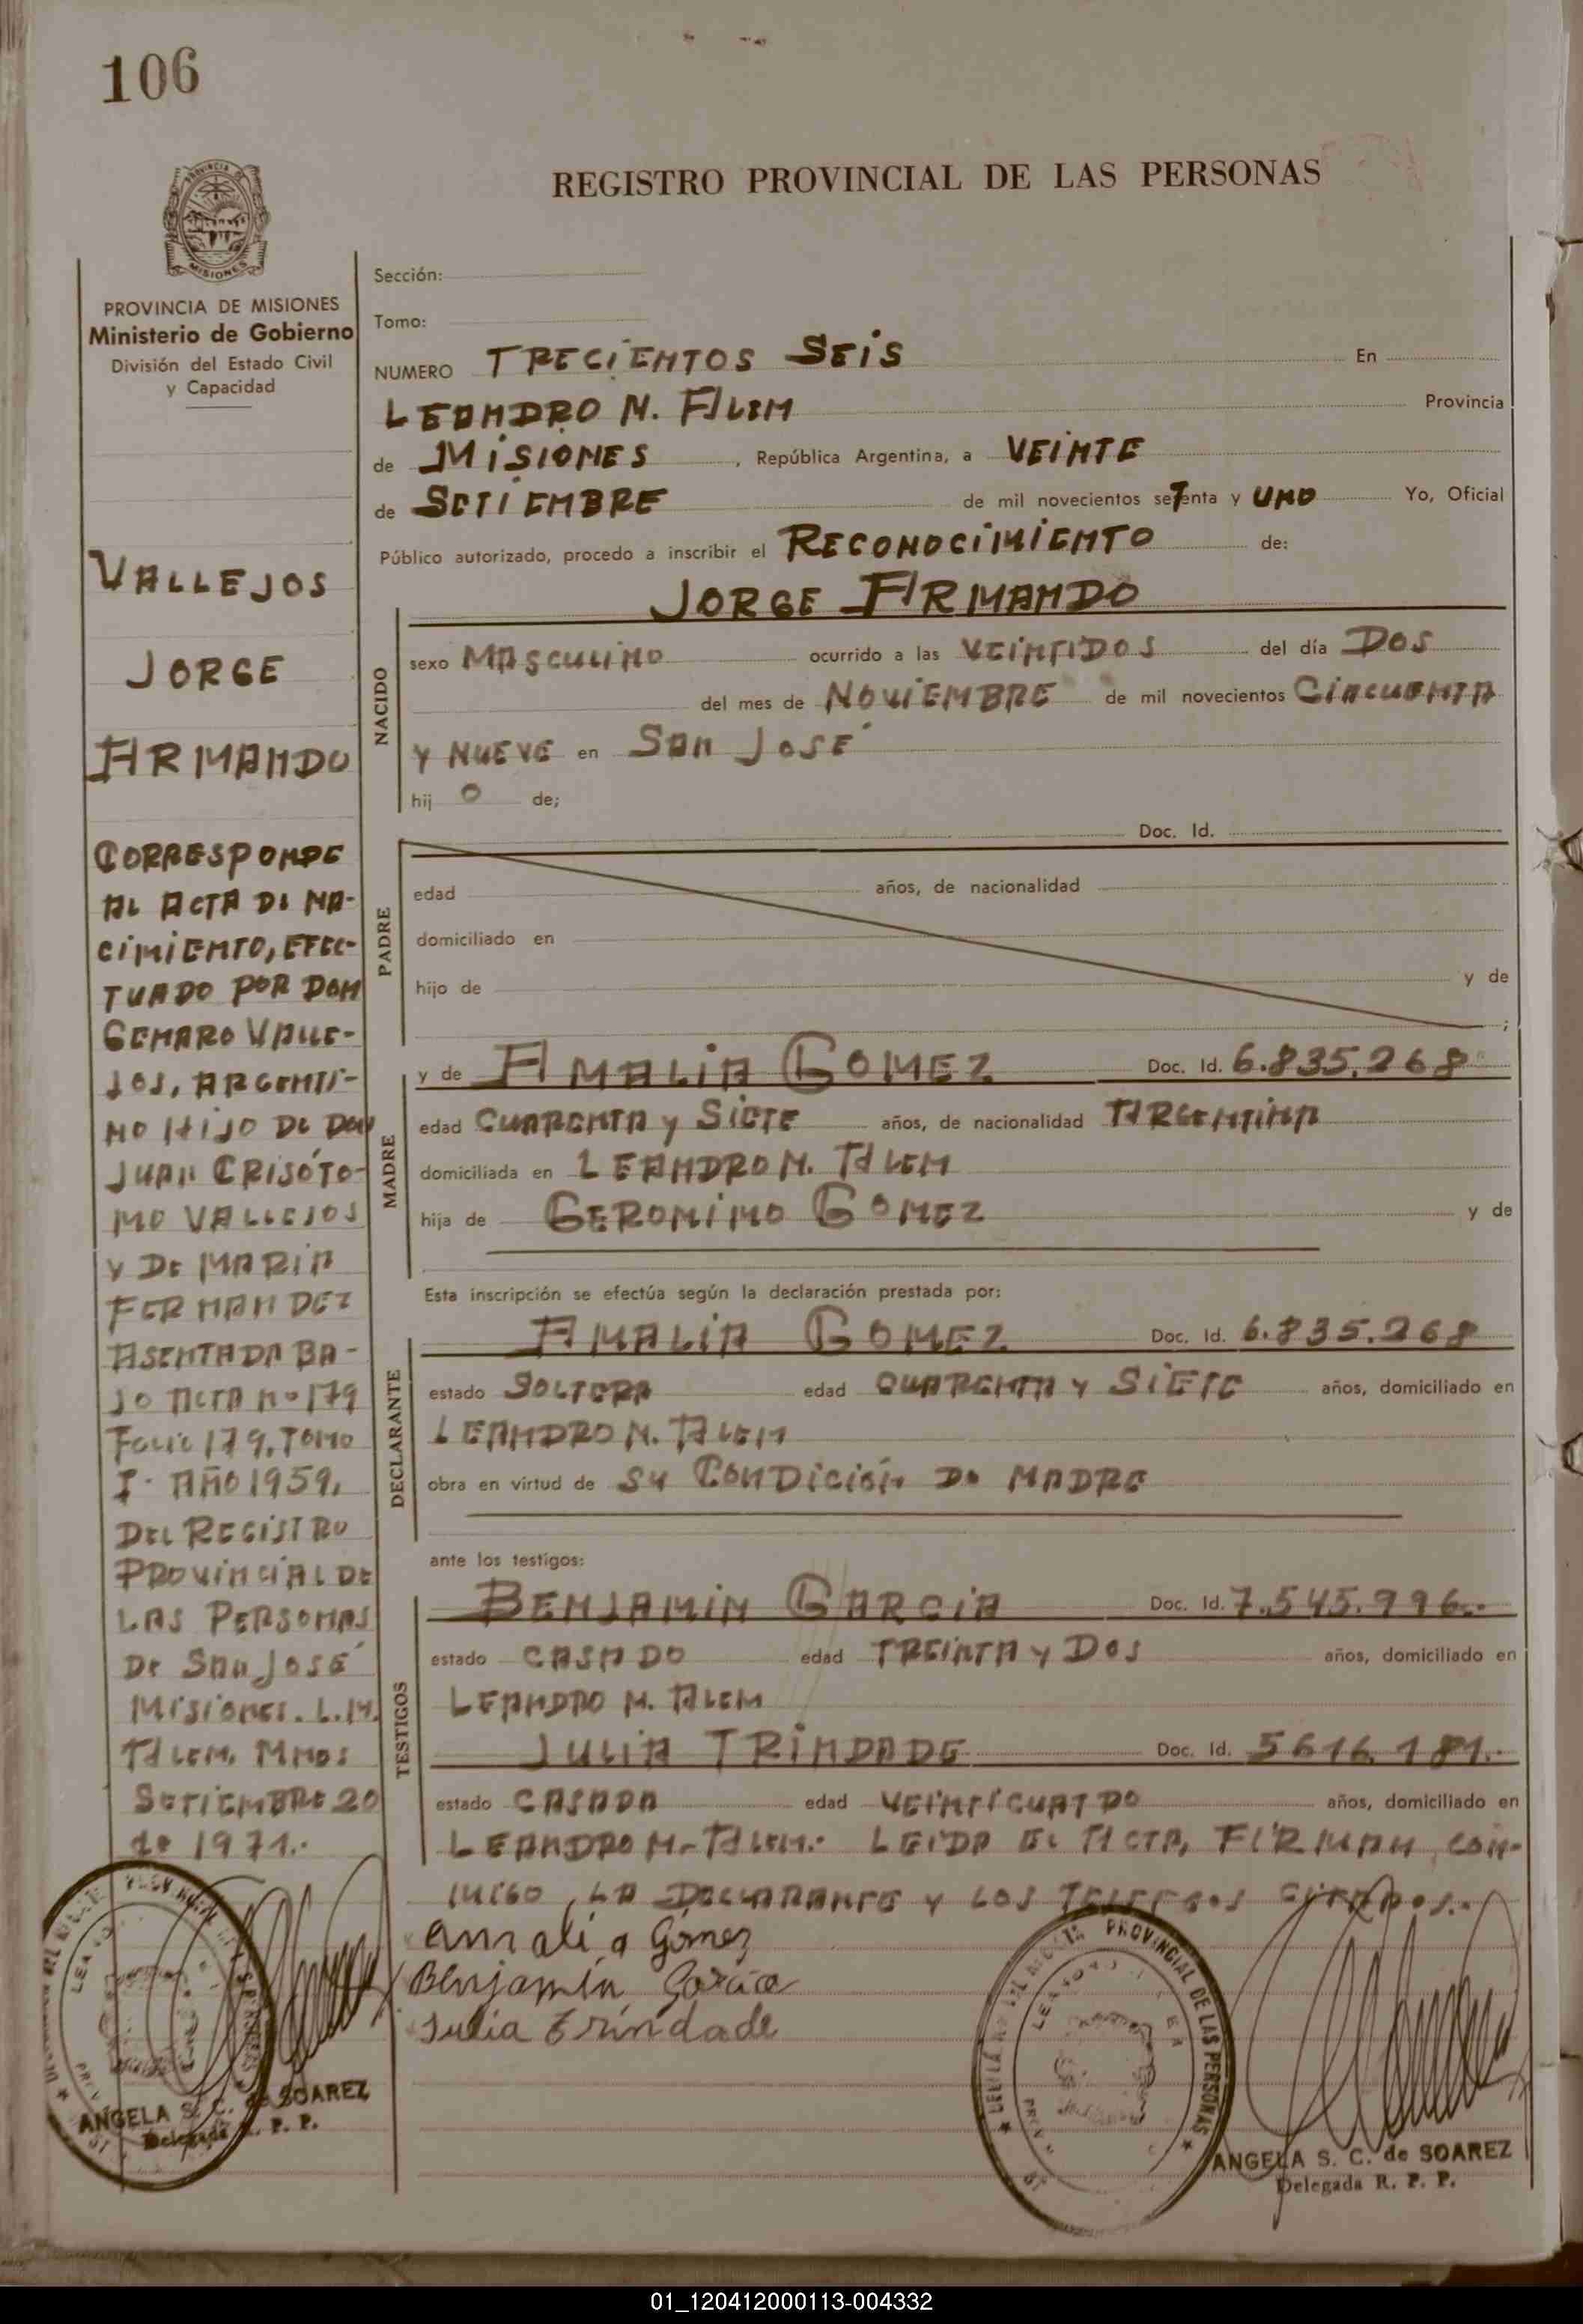 106
REGISTRO PROVINCIAL DE LAS PERSONAS
PROVINCIA DE MISIONES
Ministerio de Gobierno
División del Estado Civil
y Capacidad
VALLEJOS
JORGE
ARMANDO
CORRESPONDE
AL ACTA DE NA-
CIMIENTO, EFEC-
TUADO POR DON
GENARO VALLE-
JOS, ARGENTI-
NO HIJO DE DON
JUAN CRISÓTO-
MO VALLEJOS
Y DE MARIA
FERNANDEZ
ASENTADA BA-
JO ACTA Nº 179
FOLIO 179, TOMO
I. AÑO 1959,
DEL REGISTRO
PROVINCIAL DE
LAS PERSONAS
DE SAN JOSÉ
MISIONES. L.N.
ALEM, MNES:
SETIEMBRE 20
de 1971.-
ANGELA S. C. de SOAREZ
Delegada R. P. P.
Sección:
Tomo:
NUMERO TRECIENTOS SEIS En
LEANDRO N. ALEM Provincia
de MISIONES, República Argentina, a VEINTE
de SETIEMBRE de mil novecientos seTenta y UNO Yo, Oficial
Público autorizado, procedo a inscribir el RECONOCIMIENTO de:
JORGE ARMANDO
NACIDO
sexo MASCULINO ocurrido a las VEINTIDOS del día DOS
del mes de NOVIEMBRE de mil novecientos CINCUENTA
Y NUEVE en SAN JOSÉ
hij O de;
PADRE
Doc. Id.
edad años, de nacionalidad
domiciliado en
hijo de y de
;
MADRE
y de AMALIA GOMEZ Doc. Id. 6.835.268
edad CUARENTA Y SIETE años, de nacionalidad ARGENTINA
domiciliada en LEANDRO N. ALEM
hija de GERONIMO GOMEZ y de
Esta inscripción se efectúa según la declaración prestada por:
DECLARANTE
AMALIA GOMEZ Doc. Id. 6.835.268
estado SOLTERA edad CUARENTA Y SIETE años, domiciliado en
LEANDRO N. ALEM
obra en virtud de SU CONDICIÓN DE MADRE
ante los testigos:
TESTIGOS
BENJAMIN GARCIA Doc. Id. 7.545.996.-
estado CASADO edad TREINTA Y DOS años, domiciliado en
LEANDRO N. ALEM
JULIA TRINDADE Doc. Id. 5616.181.-
estado CASADA edad VEINTICUATDO años, domiciliado en
LEANDRO N. ALEM.- LEIDA EL ACTA, FIRMAN CON-
MIGO, LA DECLARANTE Y LOS TESTIGOS CITADOS.-
Amalia Gómez
Benjamín García
Julia Trindade
PROVINCIAL DE LAS PERSONAS
ANGELA S. C. de SOAREZ
Delegada R. P. P.
01_120412000113-004332